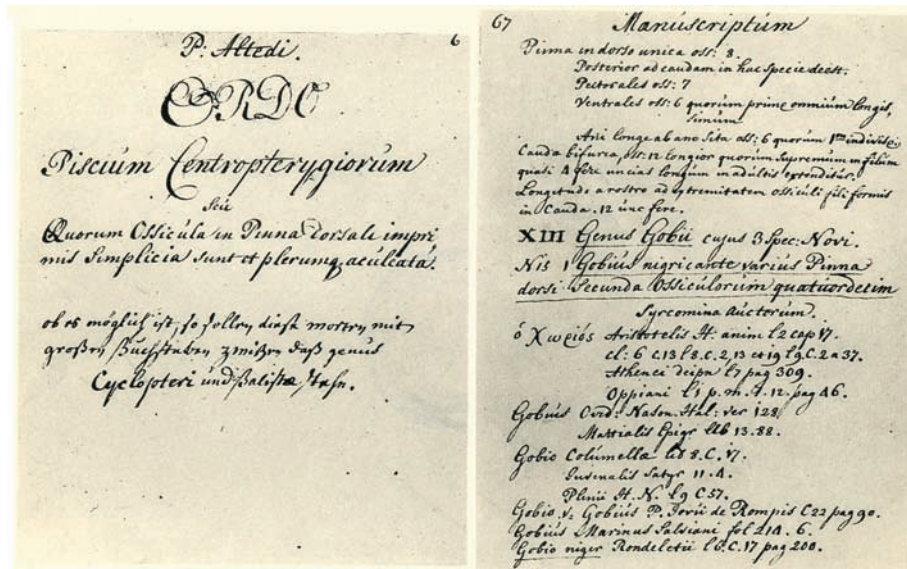 6
P: Altedi.
ORDO
Piscium Centropterygiorum
seu
Quorum Ossicula in Pinna dorsali impri
mis Simplicia sunt et plerumq aculeata.
ob es möglich ist, so sollen diese worten mit
großen Buchstaben zwischen daß genus
Cyclopteri und Balistæ stehn.
67
Manuscriptum
Pinna in dorso unica oss: 8.
Posterior ad caudam in hac specie deest.
Pectorales oss: 7
Ventrales oss: 6 quorum prime omnium longis,
simum
Ani longe ab ano sita oss: 6 quorum 1mm indivis
Cauda bifurca, oss: 12 longior quorum Supremum in filum
quasi 4 fere uncias longum in adultis extenditur.
Longitudo a rostro ad extremitatem ossiculi filiformis
in Cauda. 12 unc fere.
XIII Genus Gobii cujus 3 Spec: Novi.
Nis 1 Gobius nigricante varius Pinna
dorsi Secunda Ossiculorum quatuordecim
Syrcomina Auctorum.
ό Χωβιός Aristotelis H: anim l 2 cap 17.
cl: 6 c. 13 l 8. c. 2, 13 et 19 l 9. C. 2 a 37.
Athenei deipn l 7 pag 309.
Oppiani l 1 p. m. 7. 12. pag 46.
Gobius Ovid: Nason. Hal: ver 128
Martialis Epigr lib 13. 88.
Gobio Columellæ lib 8. C. 17.
Juvenalis Satyr 11. 4.
Plinii H. N. l 9 C 57.
Gobio v. Gobius P. Jovii de Rompis C 22 pag 90.
Gobius Marinus Salviani fol 214. 6.
Gobio niger Rondeletii l 6. C. 17 pag 200.